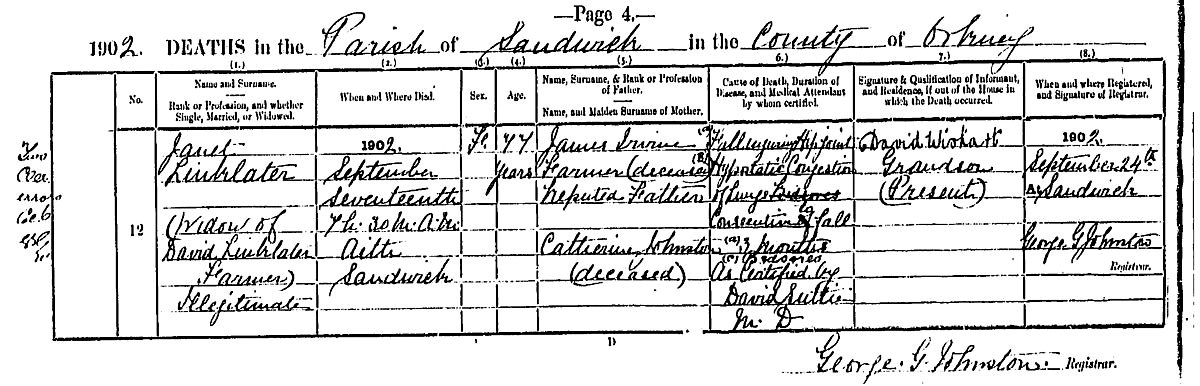 —Page 4.—
1902. DEATHS in the Parish of Sandwick in the County of Orkney
(1.) (2.) (3.) (4.) (5.) (6.) 7.) (8.)
No.
Name and Surname.
Rank or Profession, and whether
Single, Married, or Widowed.
When and Where Died.
Sex.
Age.
Name, Surname, & Rank or Profession
of Father.
Name, and Maiden Surname of Mother.
Cause of Death, Duration of
Disease, and Medical Attendant
by whom certified.
Signature & Qualification of Informant,
and Residence, if out of the House in
which the Death occurred.
When and where Registered,
and Signature of Registrar.
12
Janet
Linklater
(Widow of
David Linklater
Farmer)
Illegitimate
1902.
September
Seventeenth
7h. 30m. A.M.
Aith
Sandwick
F.
77
years
James Irvine
Farmer (deceased)
Reputed Father
Catherine Johnston
(deceased)
(a) Fall injuring Hip joint
(B) Hypostatic Congestion
of Lungs Bedsores
Consecutive to fall
(a) 3 Months
(c) Bedsores
As Certified by
David Suttie
M. D
David Wishart
Grandson
(Present)
1902.
September 24th
At Sandwick
George G Johnston
Registrar.
D
George. G. Johnston. Registrar.